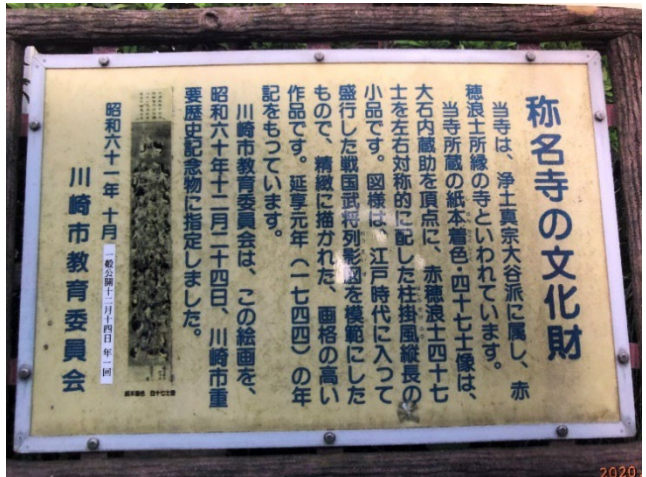 称名寺の文化財
当寺は、浄土真宗大谷派に属し、赤
穂浪士所縁の寺といわれています。
当寺所蔵の紙本着色・四十七士像は、
大石内蔵助を頂点に、赤穂浪士四十七
士を左右対称的に配した柱掛風縦長の
小品です。図様は、江戸時代に入って
盛行した戦国武将列影図を模範にした
もので、精緻に描かれた、画格の高い
作品です。延享元年(一七四四)の年
記をもっています。
川崎市教育委員会は、この絵画を、
昭和六十年十二月二十四日、川崎市重
要歴史記念物に指定しました。
紙本着色 四十七士像
一般公開十二月十四日 年一回
昭和六十一年 十月
川崎市教育委員会
2020